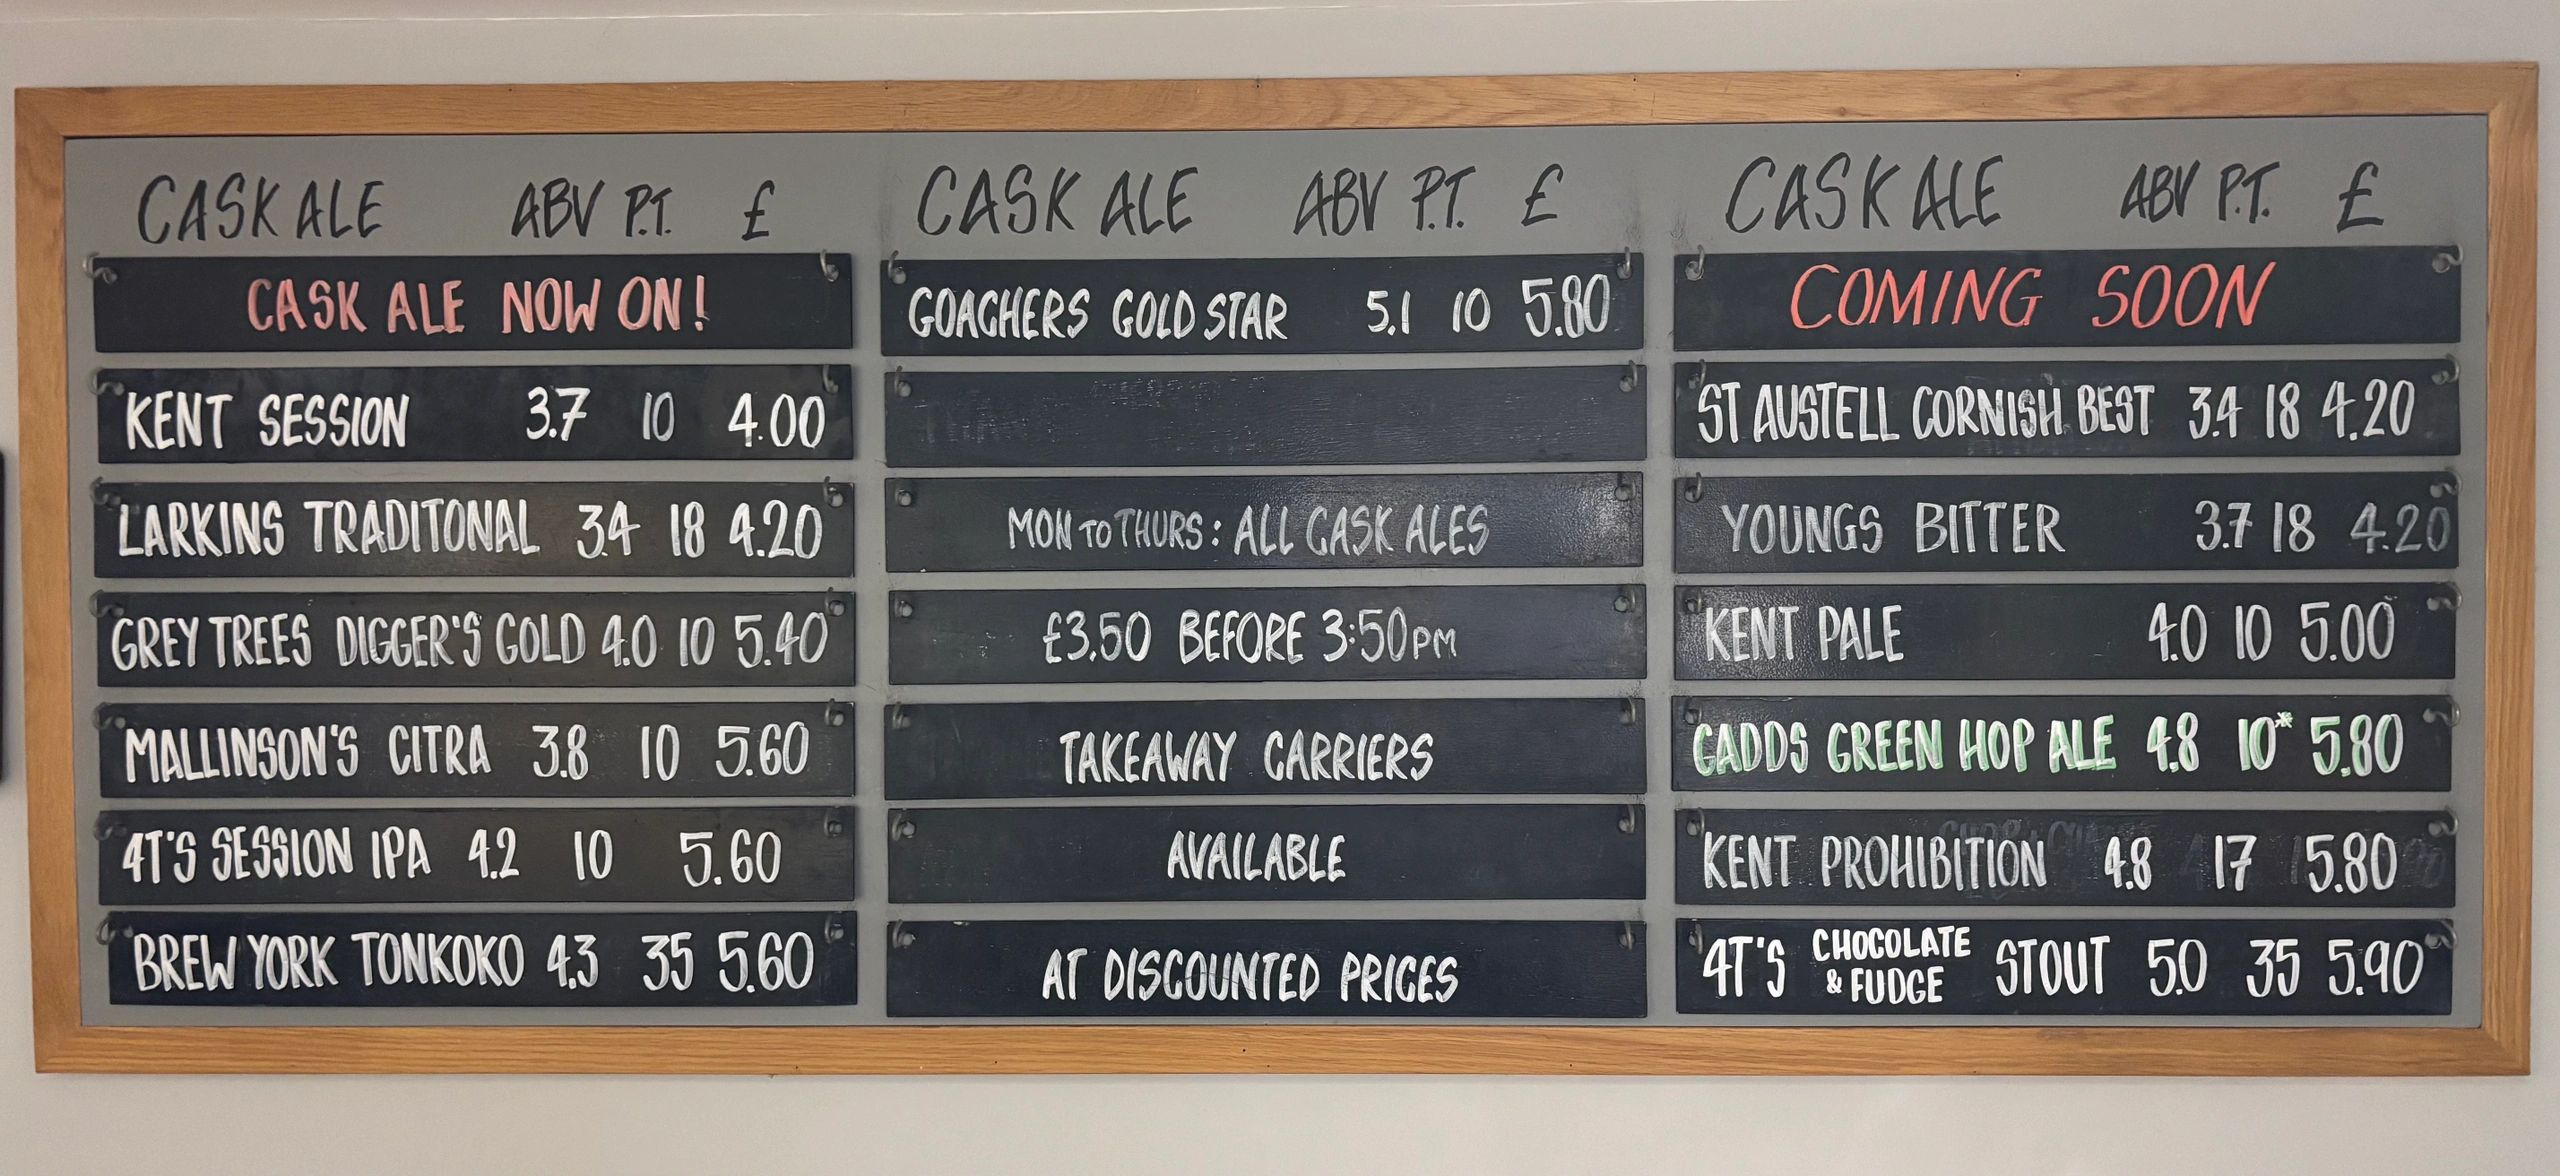 CASK ALE ABV P.T. £
CASK ALE NOW ON!
KENT SESSION 3.7 10 4.00
LARKINS TRADITONAL 3.4 18 4.20
GREY TREES DIGGER'S GOLD 4.0 10 5.40
MALLINSON'S CITRA 3.8 10 5.60
4T'S SESSION IPA 4.2 10 5.60
BREW YORK TONKOKO 4.3 35 5.60
CASK ALE ABV P.T. £
GOACHERS GOLD STAR 5.1 10 5.80
MON TO THURS: ALL CASK ALES
£3.50 BEFORE 3:50PM
TAKEAWAY CARRIERS
AVAILABLE
AT DISCOUNTED PRICES
CASK ALE ABV P.T. £
COMING SOON
ST AUSTELL CORNISH BEST 3.4 18 4.20
YOUNGS BITTER 3.7 18 4.20
KENT PALE 4.0 10 5.00
GADDS GREEN HOP ALE 4.8 10* 5.80
KENT PROHIBITION 4.8 17 5.80
4T'S CHOCOLATE & FUDGE STOUT 5.0 35 5.90